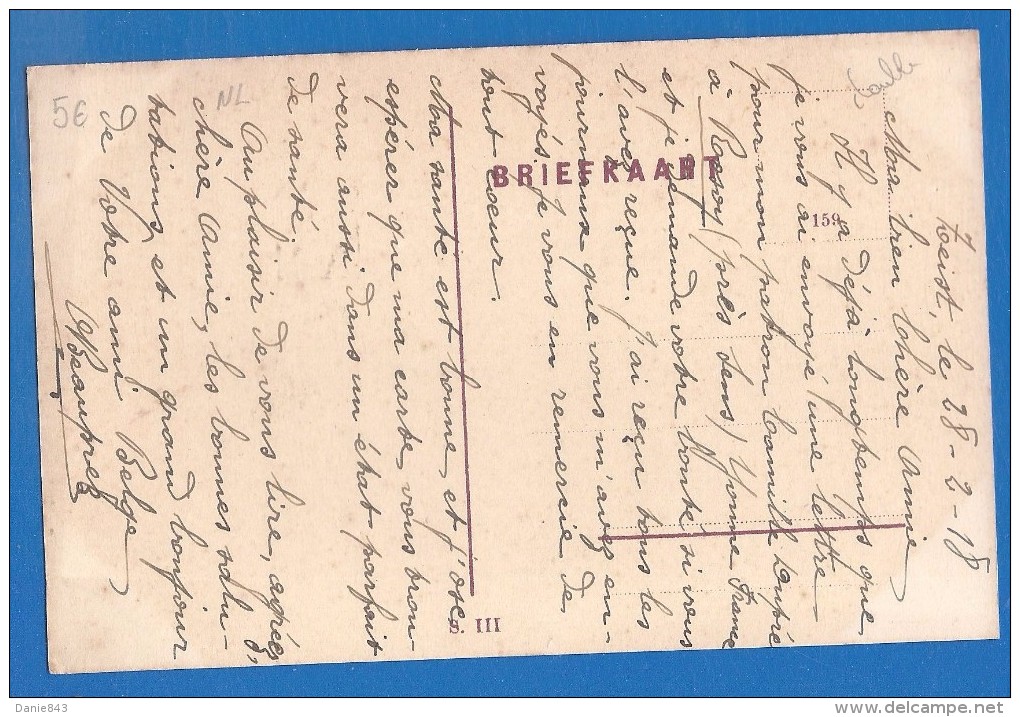 Zeist, le 28-2-18
Ma bien chère Amie
Il y a déjà longtemps que
je vous ai envoyé une lettre
pour mon patron Camille
à Rosoy (près Sens) Yonne France
et je demande votre bonté si vous
l'avez reçue. J'ai reçu tous les
journaux que vous m'avez en-
voyés. Je vous en remercie de
tout coeur.
Ma santé est bonne, et j'ose
espérer que ma carte, vous trou-
vera aussi dans un état parfait
de santé.
Au plaisir de vous lire, agréez,
chère Amie, les bonnes salu-
tations, et un grand bonjour
de Votre ami Belge
Beauprez
BRIEFKAART
159
S. III
5€
NL
Danie843
www.delcampe.net